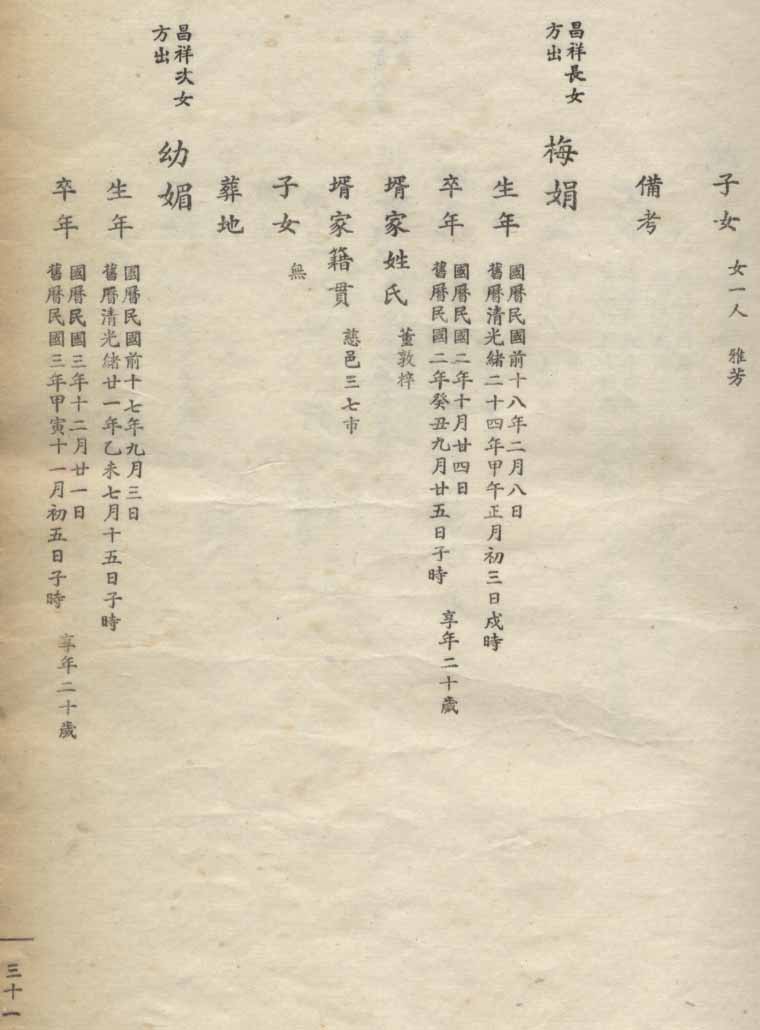 子女 女一人 雅芳
備考
昌祥長女
方出
梅娟
生年
國曆民國前十八年二月八日
舊曆清光緒二十四年甲午正月初三日戍時
卒年
國曆民國二年十月廿四日
舊曆民國二年癸丑九月廿五日子時
享年二十歲
壻家姓氏 董敦梓
壻家籍貫 慈邑三七市
子女 無
葬地
昌祥次女
方出
幼媚
生年
國曆民國前十七年九月三日
舊曆清光緒廿一年乙未七月十五日子時
卒年
國曆民國三年十二月廿一日
舊曆民國三年甲寅十一月初五日子時
享年二十歲
三十一